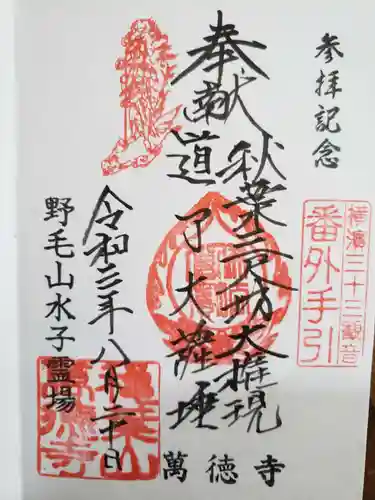 参拝記念
横濱三十三観音
番外手引
奉献
秋葉三尺坊大権現
道了大薩埵
令和三年八月二十日
野毛山水子霊場
萬徳寺